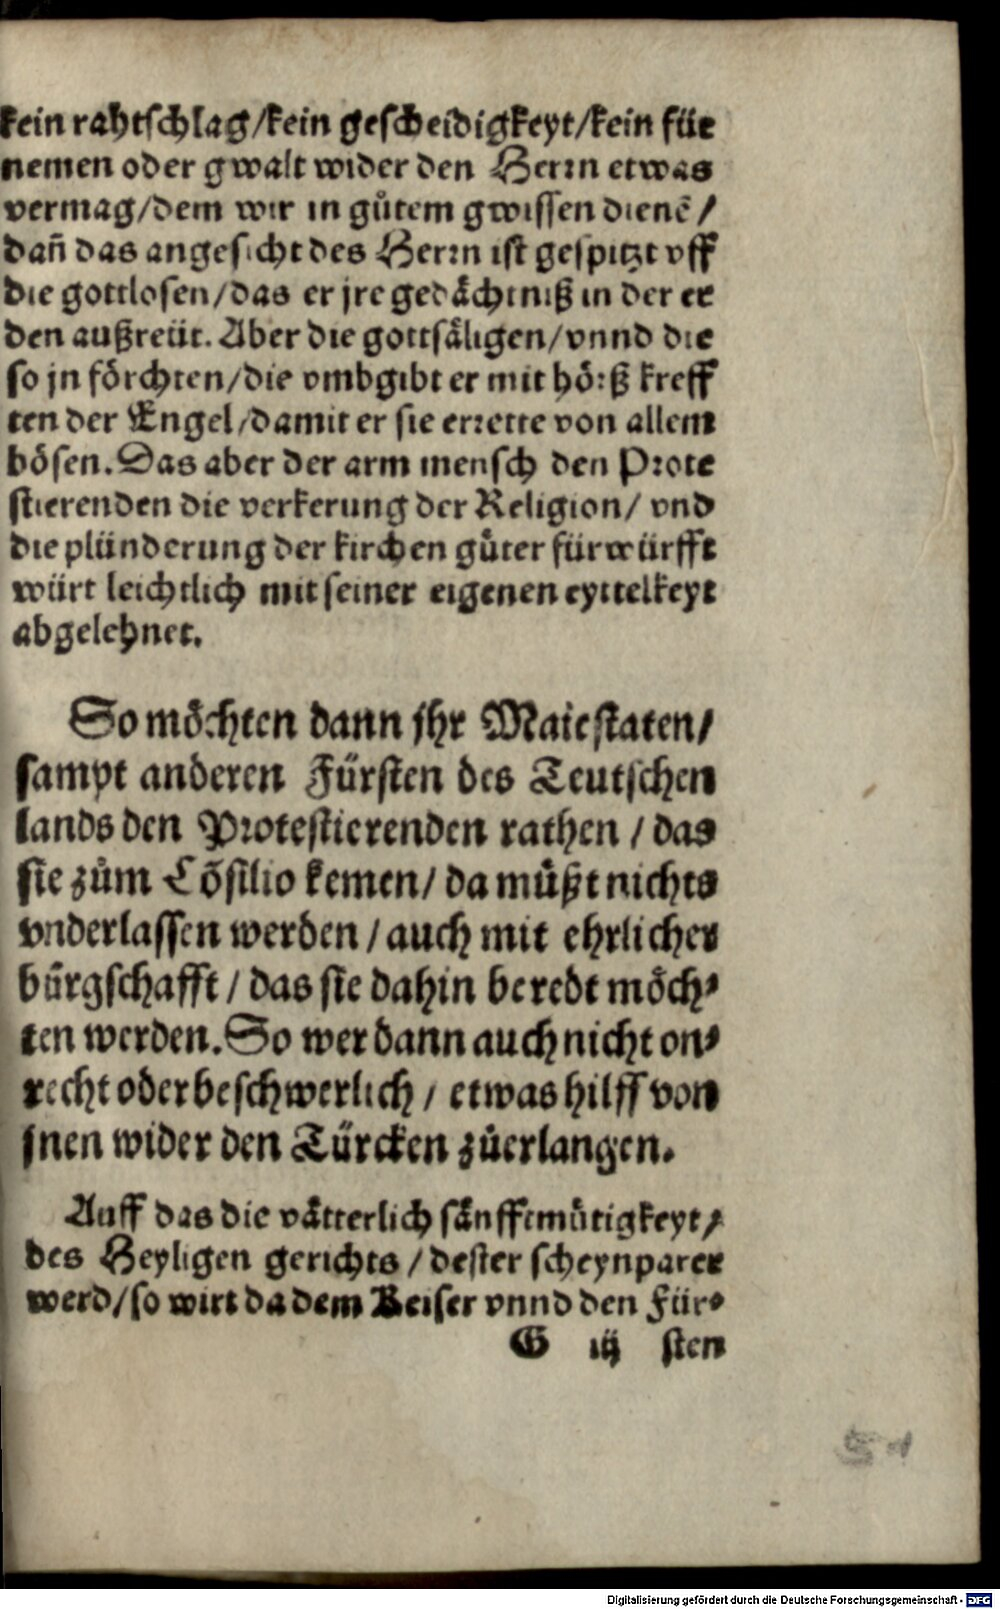 kein rahtschlag/kein gescheidigkeyt/kein für
nemen oder gwalt wider den Herrn etwas
vermag/dem wir in gůtem gwissen dienē/
dañ das angesicht des Herrn ist gespitzt vff
die gottlosen/das er jre gedächtniß in der er
den außreüt. Aber die gottsäligen/vnnd die
so jn förchten/die vmbgibt er mit hörß kreff
ten der Engel/damit er sie errette von allem
bösen. Das aber der arm mensch den Prote
stierenden die verkerung der Religion/ vnd
die plünderung der kirchen gůter fürwürfft
würt leichtlich mit seiner eigenen eyttelkeyt
abgelehnet.
So möchten dann jhr Maiestaten/
sampt anderen Fürsten des Teutschen
lands den Protestierenden rathen / das
sie zům Cōsilio kemen/ da můßt nichts
vnderlassen werden / auch mit ehrlicher
bürgschafft / das sie dahin beredt möch⸗
ten werden. So wer dann auch nicht on⸗
recht oder beschwerlich / etwas hilff von
jnen wider den Türcken zůerlangen.
Auff das die vätterlich sänfftmütigkeyt/
des Heyligen gerichts / dester scheynparer
werd/so wirt da dem Keiser vnnd den Für⸗
G iij sten
51
Digitalisierung gefördert durch die Deutsche Forschungsgemeinschaft - DFG